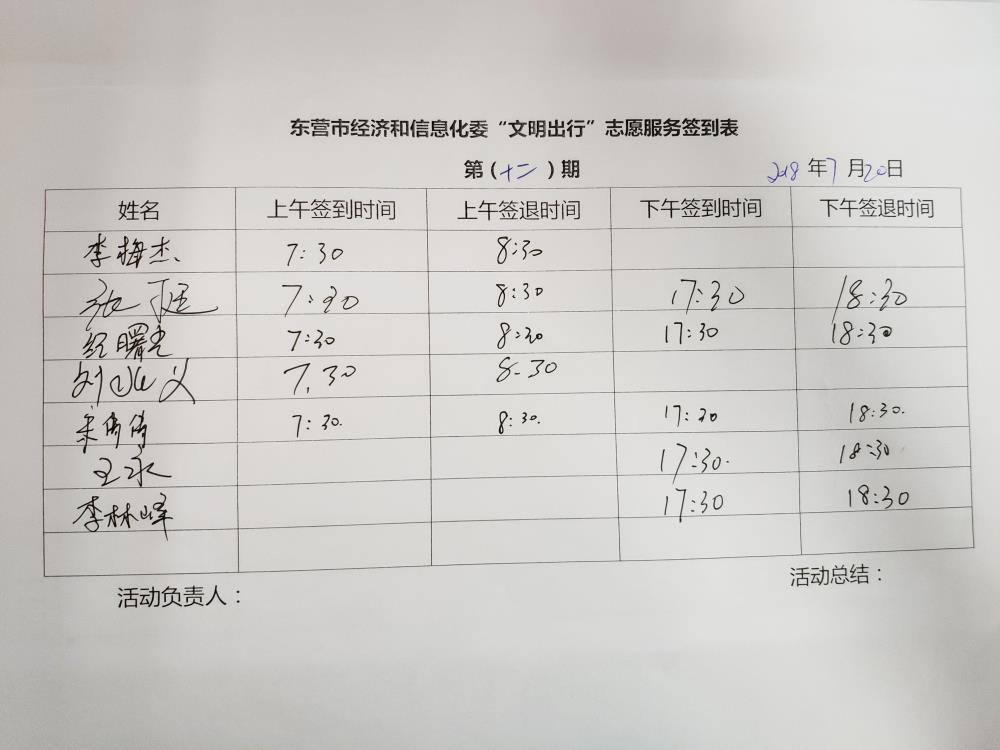 东营市经济和信息化委“文明出行”志愿服务签到表
第(十二)期 2018年7月20日
姓名 上午签到时间 上午签退时间 下午签到时间 下午签退时间
李梅杰 7:30 8:30
张庭 7:30 8:30 17:30 18:30
纪曙光 7:30 8:30 17:30 18:30
刘 义 7.30 8-30
宋倩倩 7:30. 8:30. 17:20 18:30.
王永 17:30. 18:30
李林峰 17:30 18:30
活动负责人： 活动总结：